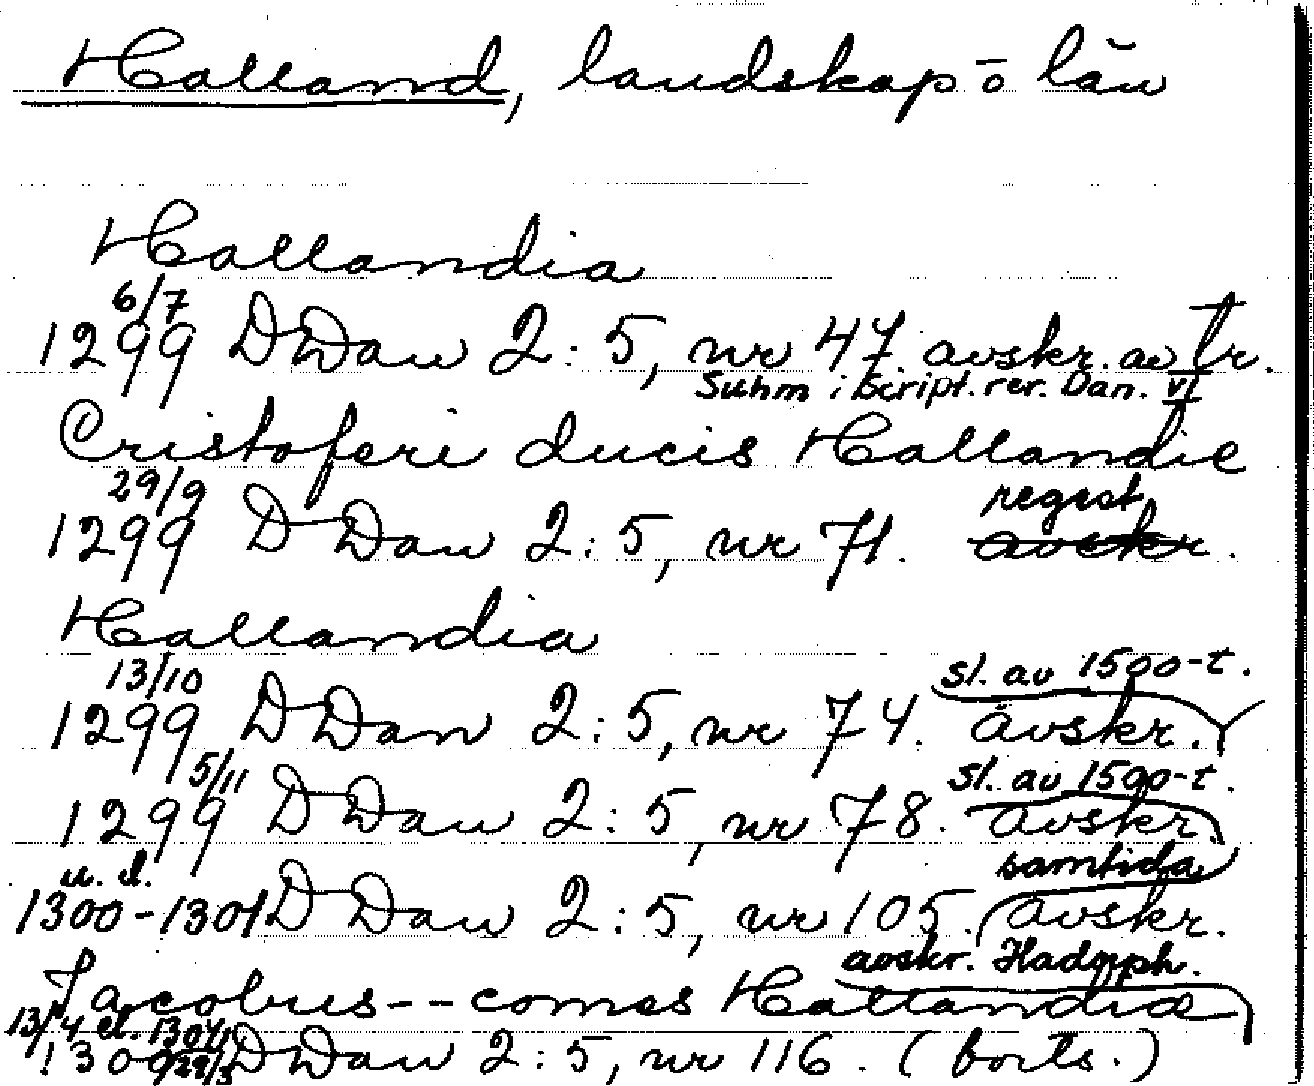 Halland, landskap o län
Hallandia
6/7
1299 DDan 2:5, nr 47 avskr. av tr.
Suhm i Script. rer. Dan. VI
Cristoferi ducis Hallandie
29/9 regest
1299 DDan 2:5, nr 71. avskr.
Hallandia
13/10 sl. av 1500-t.
1299 DDan 2:5, nr 74. avskr.
5/11 sl. av 1500-t.
1299 DDan 2:5, nr 78. avskr.
u. d. samtida
1300-1301 DDan 2:5, nr 105. avskr.
avskr. Hadorph.
Jacobus -- comes Hallandie
13/4 el.
DDan 2:5, nr 116. (forts.)